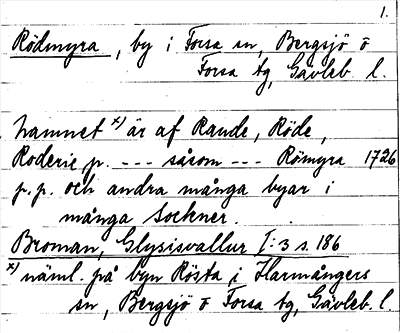 1.
Rödmyra, by i Forsa sn, Bergsjö o
Forsa tg, Gävleb. l.
Namnet x) är af Raude, Röde,
Roderic, p. --- såsom --- Römyra 1726
p.p. och andra många byar i
många Sockner.
Broman, Glysisvallur I:3 s. 186
x) näml. på byn Rösta i Harmångers
sn, Bergsjö o Forsa tg, Gävleb. l.